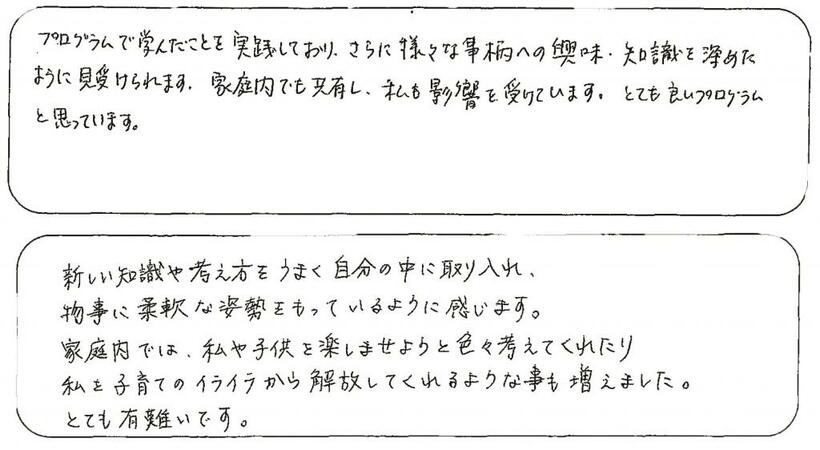 プログラムで学んだことを実践しており、さらに様々な事柄への興味・知識を深めた
ように見受けられます。家庭内でも共有し、私も影響を受けています。とても良いプログラム
と思っています。
新しい知識や考え方をうまく自分の中に取り入れ、
物事に柔軟な姿勢をもっているように感じます。
家庭内では、私や子供を楽しませよりと色々考えてくれたり
私を子育てのイライラから解放してくれるような事も増えました。
とても有難いです。